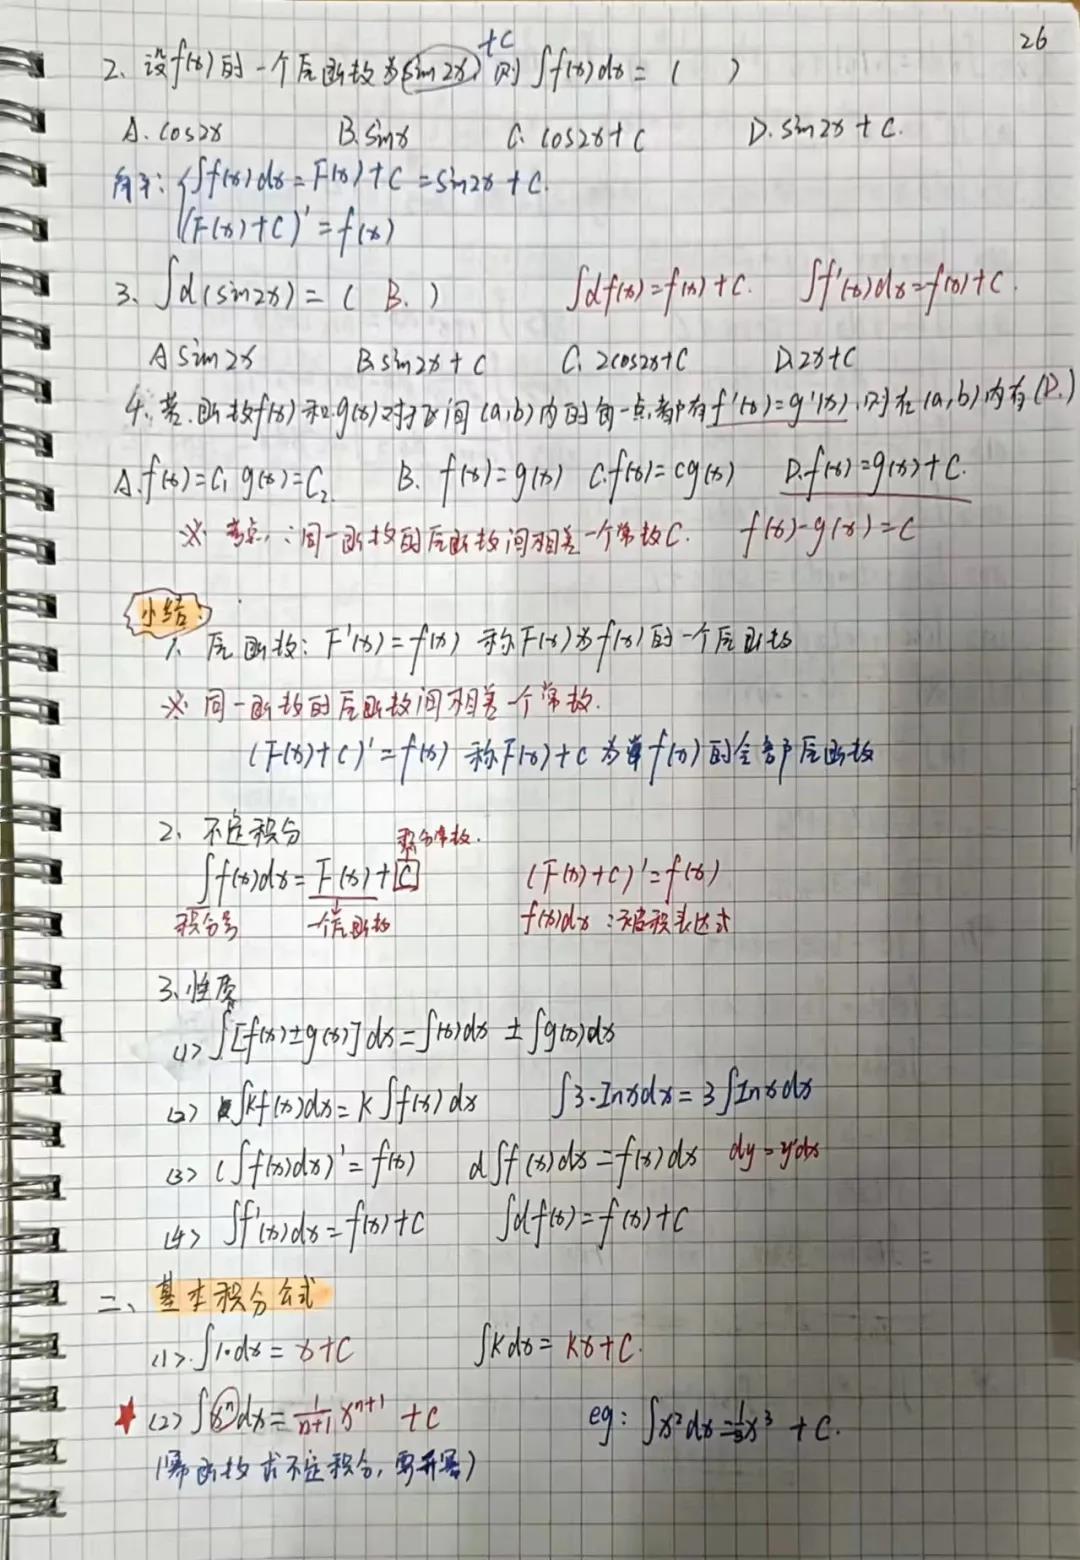 26
+C
2、设f(x)的一个原函数为(sin2x) 则 ∫f(x)dx = (    )
A. cos2x  B. sinx  C. cos2x + C  D. sin2x + C.
解: { ∫f(x)dx = F(x) + C = sin2x + C.
(F(x)+C)' = f(x)
3、∫d(sin2x) = ( B. )  ∫df(x) = f(x) + C.  ∫f'(x)dx = f(x) + C.
A sin2x  B. sin2x + C  C. 2cos2x+C  D. 2x+C
4、若函数f(x)和g(x)对于区间(a,b)内的每一点都有f'(x)=g'(x),则在(a,b)内有(D.)
A. f(x)=C₁ g(x)=C₂.  B. f(x)=g(x)  C. f(x)=cg(x)  D. f(x)=g(x)+C.
※ 考点:同一函数的原函数间相差一个常数C.  f(x)-g(x)=C
小结:
1、原函数: F'(x)=f(x) 称F(x)为f(x)的一个原函数
※ 同一函数的原函数间相差一个常数.
(F(x)+C)'=f(x) 称F(x)+C为f(x)的全部原函数
2、不定积分
积分常数.
∫f(x)dx = F(x)+C  (F(x)+C)'=f(x)
积分号  一个原函数  f(x)dx:被积表达式
3、性质
(1) ∫[f(x)±g(x)]dx = ∫f(x)dx ± ∫g(x)dx
(2) ∫kf(x)dx = k∫f(x)dx  ∫3·Inxdx = 3∫Inxdx
(3) (∫f(x)dx)' = f(x)  d∫f(x)dx = f(x)dx  dy = y'dx
(4) ∫f'(x)dx = f(x)+C  ∫df(x) = f(x)+C
二、基本积分公式
(1). ∫1·dx = x+C  ∫kdx = kx+C.
★ (2) ∫xⁿdx = 1/(n+1) xⁿ⁺¹ + C  eg: ∫x²dx = 1/3 x³ + C.
(幂函数求不定积分,要升幂)